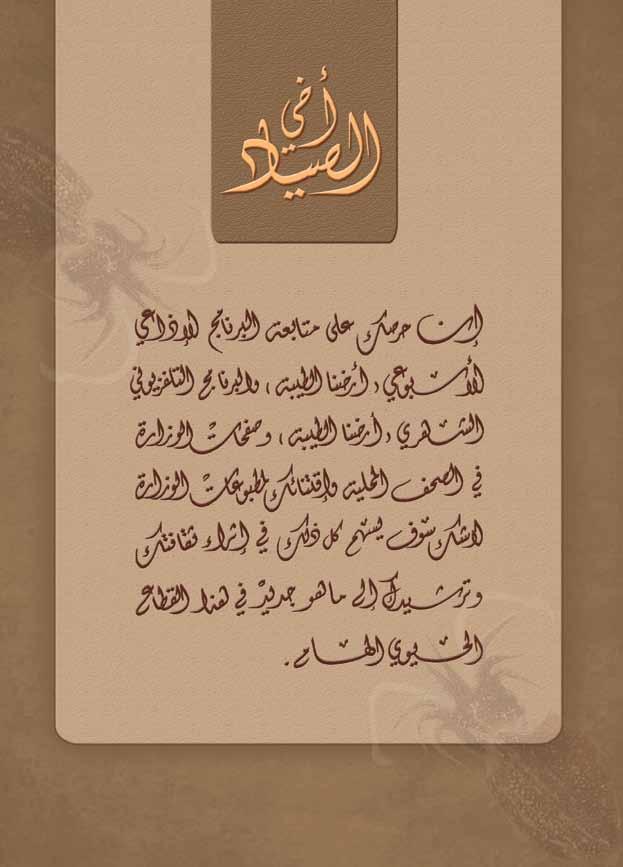 أخي
الصياد
إن حرصك على متابعة البرنامج الإذاعي
الأسبوعي (أرضنا الطيبة) والبرنامج التلفزيوني
الشهري (أرضنا الطيبة) وصفحات الوزارة
في الصحف المحلية وإقتنائك لمطبوعات الوزارة
لاشك سوف يسهم كل ذلك في إثراء ثقافتك
وترشيدك إلى ماهو جديد في هذا القطاع
الحيوي الهام .